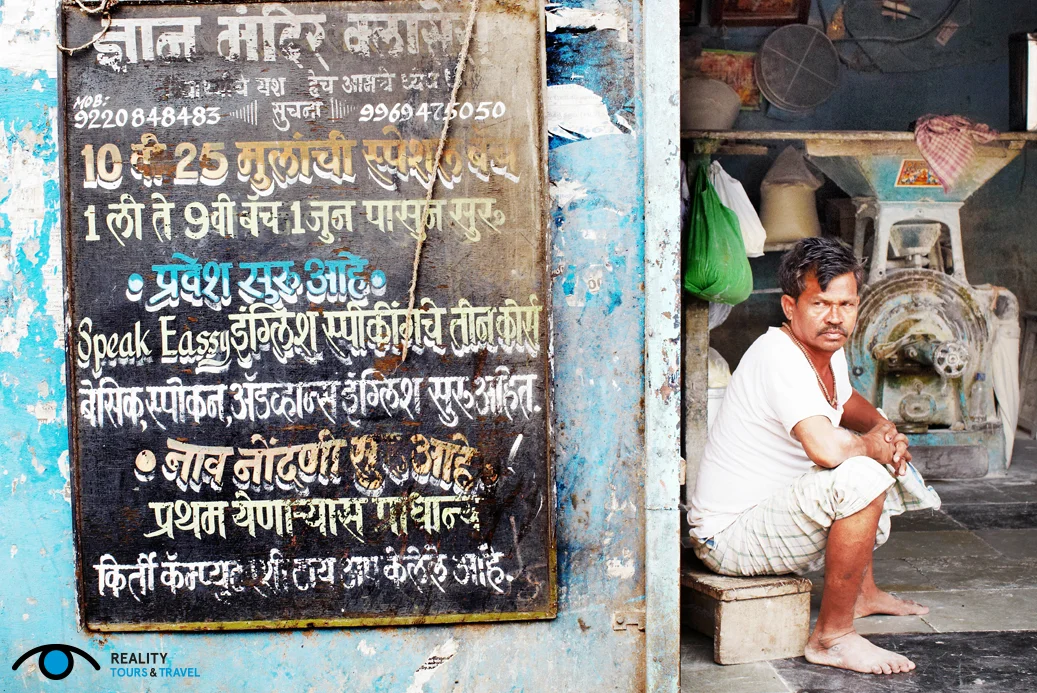 ज्ञान मंदिर क्लासेस
यश हेच आमचे ध्येय
MOB:
9220848483 सुचना 9969475050
10 वी 25 मुलांची स्पेशल बॅच
1 ली ते 9वी बॅच 1 जुन पासुन सुरु
• प्रवेश सुरु आहे •
Speak Eassy इंग्लिश स्पीकींगचे तीन कोर्स
बेसिक, स्पोकन, अ‍ॅडव्हान्स इंग्लिश सुरु आहेत.
• नाव नोंदणी सुरु आहे
प्रथम येणाऱ्यास प्राधान्य
किर्ती कॅम्प्युटरशी टाय अप केलेले आहे.
REALITY
TOURS & TRAVEL